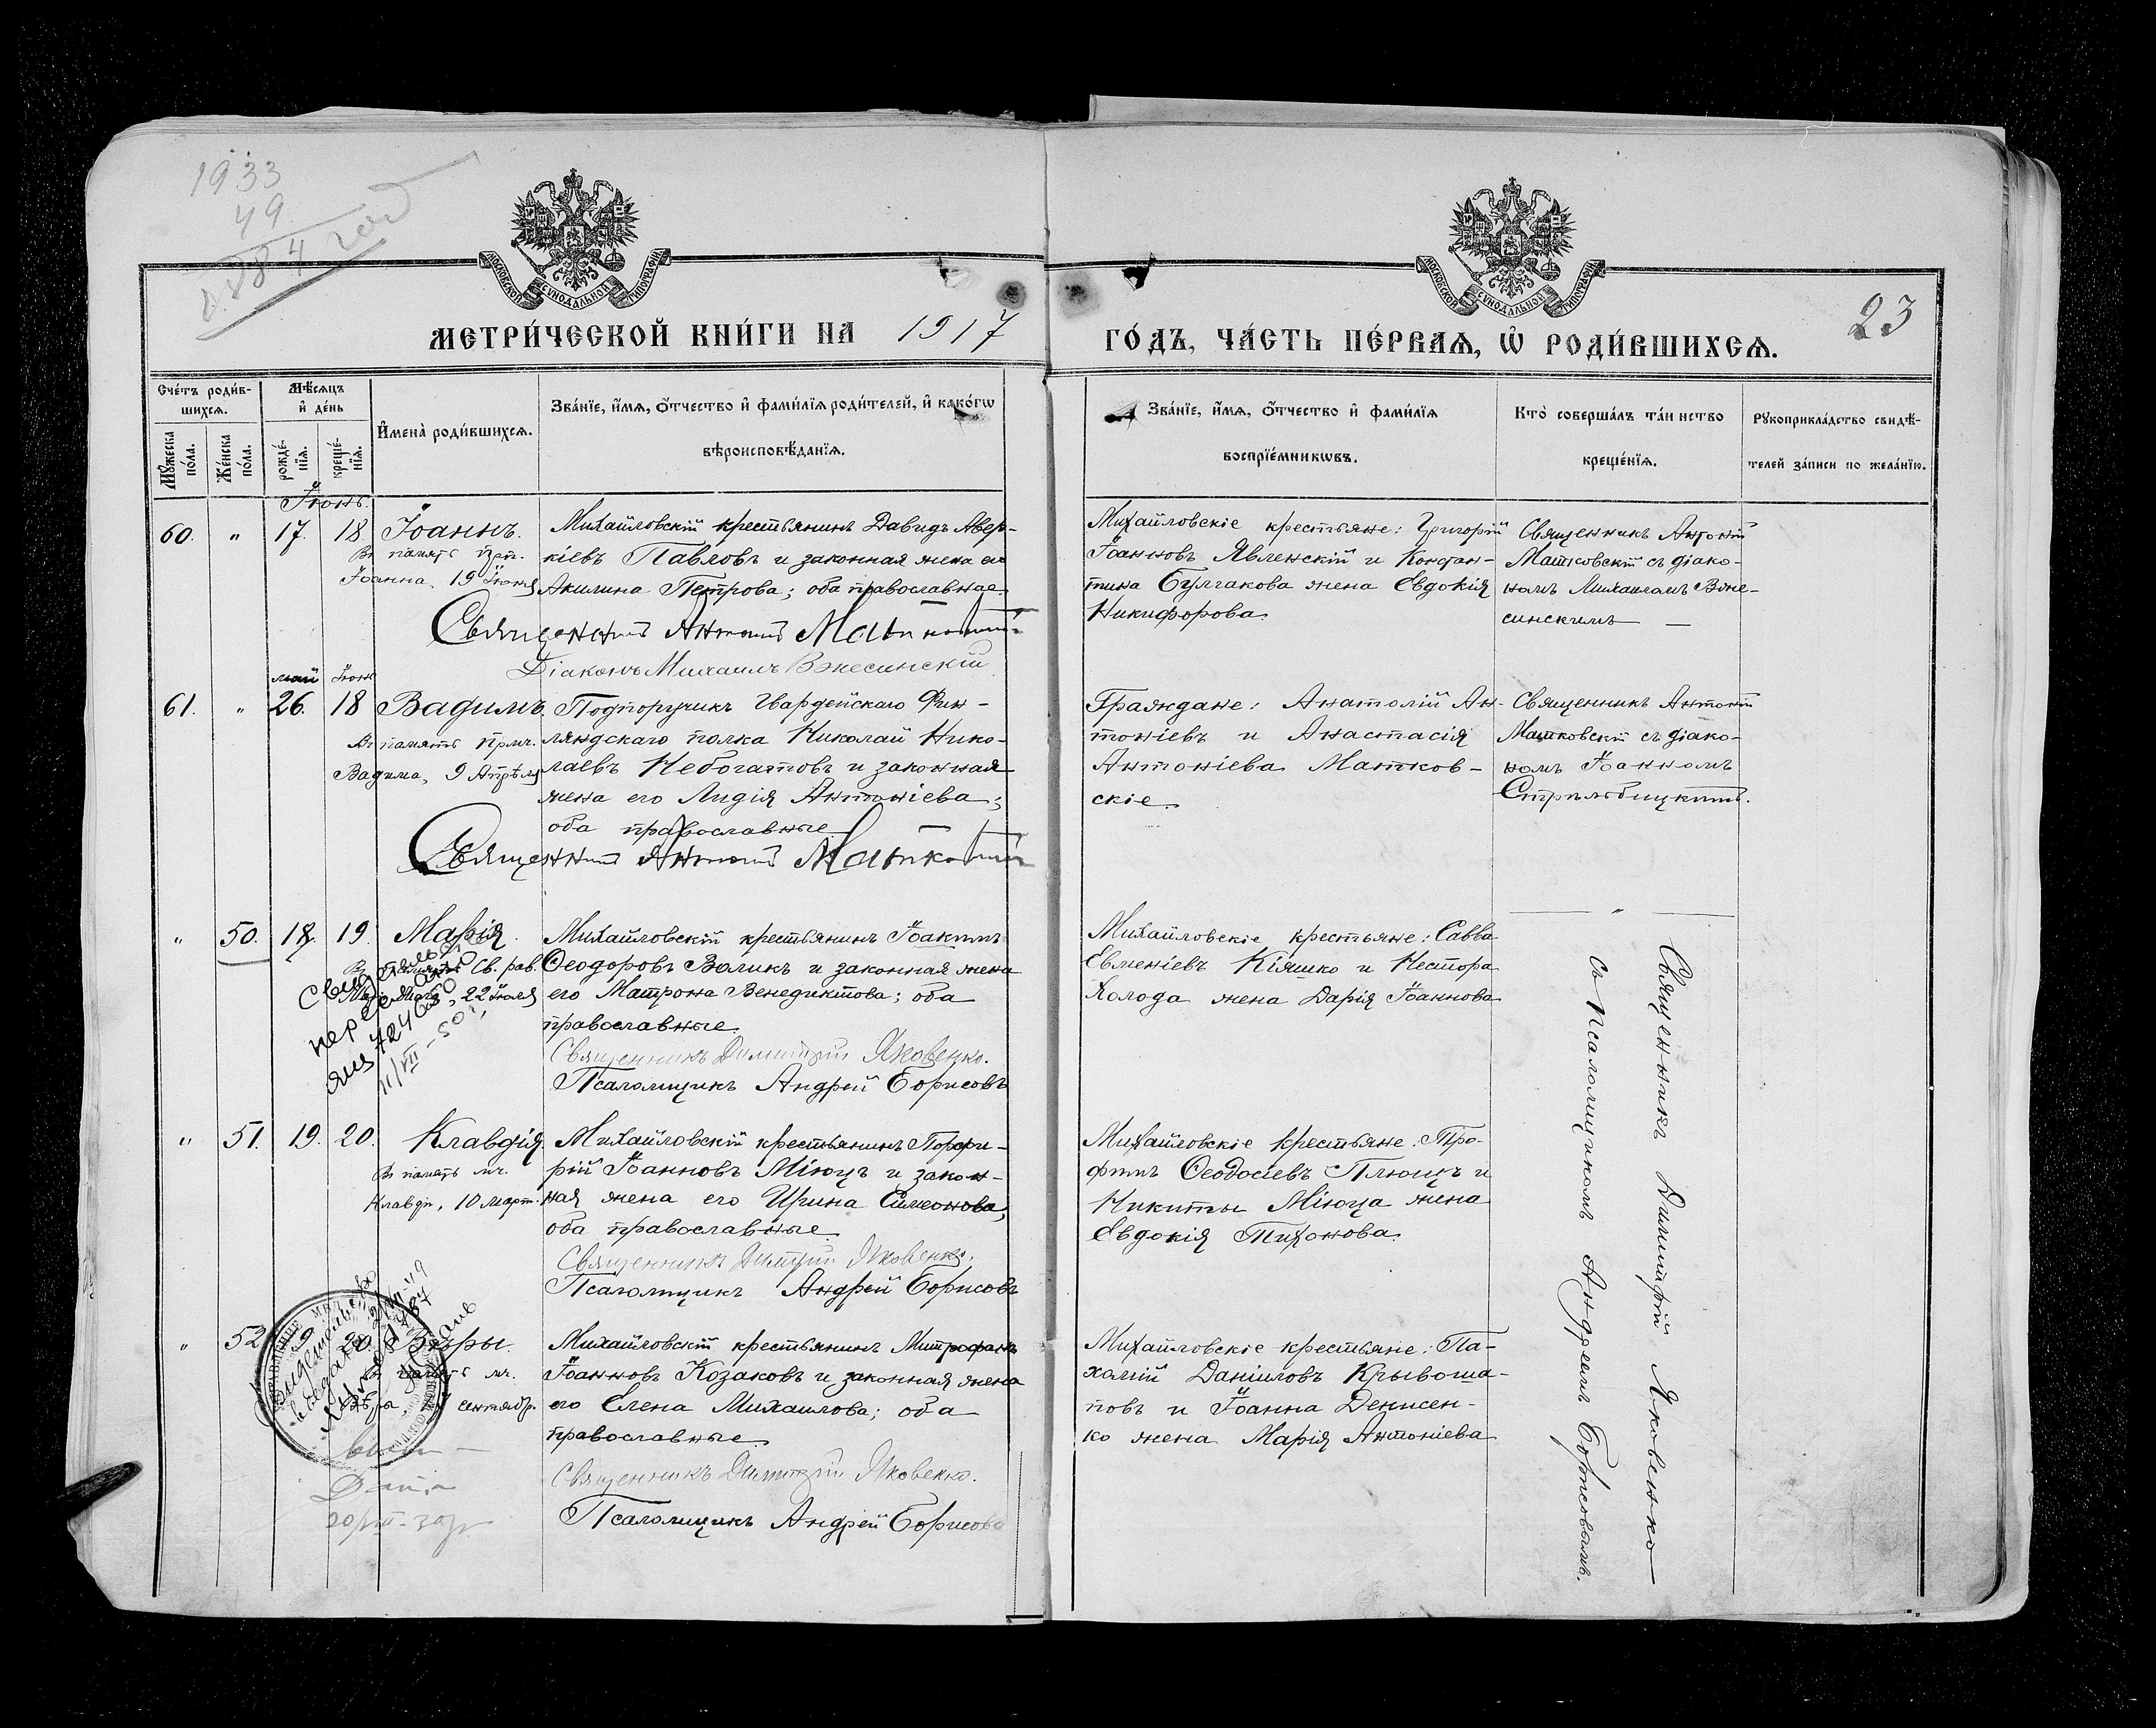 1933
49
1884 год
МОСКОВСКОЙ СѴНОДАЛЬНОЙ ТИПОГРАФІИ
МОСКОВСКОЙ СѴНОДАЛЬНОЙ ТИПОГРАФІИ
МЕТРИ́ЧЕСКОЙ КНИ́ГИ НА 1917
ГО́ДЪ, ЧА́СТЬ ПЕ́РВАѦ, Ѡ҆ РОДИ́ВШИХСѦ.
23
Сче́тъ роди́в-
шихсѧ.
Мꙋ́жеска по́ла.
Же́нска по́ла.
Мѣ́сѧцъ
и҆ де́нь
рожде́-
нїѧ.
креще́-
нїѧ.
И҆мена̀ роди́вшихсѧ.
Зва́нїе, и҆́мѧ, ѻ҆́тчество и҆ фами́лїѧ роди́телей, и҆ како́гѡ
вѣроисповѣ́данїѧ.
Зва́нїе, и҆́мѧ, ѻ҆́тчество и҆ фами́лїѧ
воспрїе́мникѡвъ.
Кто̀ соверша́лъ та́инство
креще́нїѧ.
Рꙋкоприкла́дство свидѣ́-
телей за́писи по жела́нїю.
Іюнь.
60. " 17. 18. Іоаннъ.
Въ память прп.
Іоанна, 19 Іюня
Михайловскій крестьянинъ Давидъ Авер-
кіевъ Павловъ и законная жена его
Акилина Петрова; оба православные.
Священникъ Антоній Матковскій
Діаконъ Михаилъ Вznесинскій
Михайловскіе крестьяне: Григорій
Іоанновъ Явленскій и Констан-
тина Булгакова жена Евдокія
Никифорова.
Священникъ Антоній
Матковскій съ діако-
номъ Михаиломъ Возне-
синскимъ
май Іюнь
61. " 26. 18 Вадимъ.
Въ память прмч.
Вадима, 9 Апрѣля
Подпоручикъ Гвардейскаго Фин-
ляндскаго полка Николай Нико-
лаевъ Небогатовъ и законная
жена его Лидія Антоніева;
оба православные
Священникъ Антоній Матковскій
Граждане: Анатолій Ан-
тоніевъ и Анастасія
Антоніева Матков-
скіе.
Священникъ Антоній
Матковскій съ діако-
номъ Іоанномъ
Стрильбицкимъ.
" 50. 18. 19. Марія.
Въ память Св. рав.
Мар. Магд., 22 Іюля
Михайловскій крестьянинъ Іоакимъ
Ѳеодоровъ Воликъ и законная жена
его Матрона Венедиктова; оба
православные.
Священникъ Димитрій Яковенко.
Псаломщикъ Андрей Борисовъ
Михайловскіе крестьяне: Савва
Евменіевъ Кіяшко и Нестора
Холода жена Дарія Іоаннова
" 51. 19. 20. Клавдія
Въ память мч.
Клавдіи, 10 март.
Михайловскій крестьянинъ Порфи-
рій Іоанновъ Міюцъ и закон-
ная жена его Ирина Симеонова,
оба православные
Священникъ Димитрій Яковенко.
Псаломщикъ Андрей Борисовъ
Михайловскіе крестьяне: Тро-
фимъ Ѳеодосіевъ Плющъ и
Никиты Міюца жена
Евдокія Тихонова.
" 52 19 20. Вѣры.
память мч.
Вѣры, сентябр.
Михайловскій крестьянинъ Митрофанъ
Іоанновъ Козаковъ и законная жена
его Елена Михаилова; оба
православные
Священникъ Димитрій Яковенко.
Псаломщикъ Андрей Борисовъ
Михайловскіе крестьяне: Па-
хомій Даніиловъ Крывоша-
повъ и Іоанна Денисен-
ко жена Марія Антоніева
Священникъ Димитрій Яковенко
съ Псаломщикомъ Андреемъ Борисовымъ.